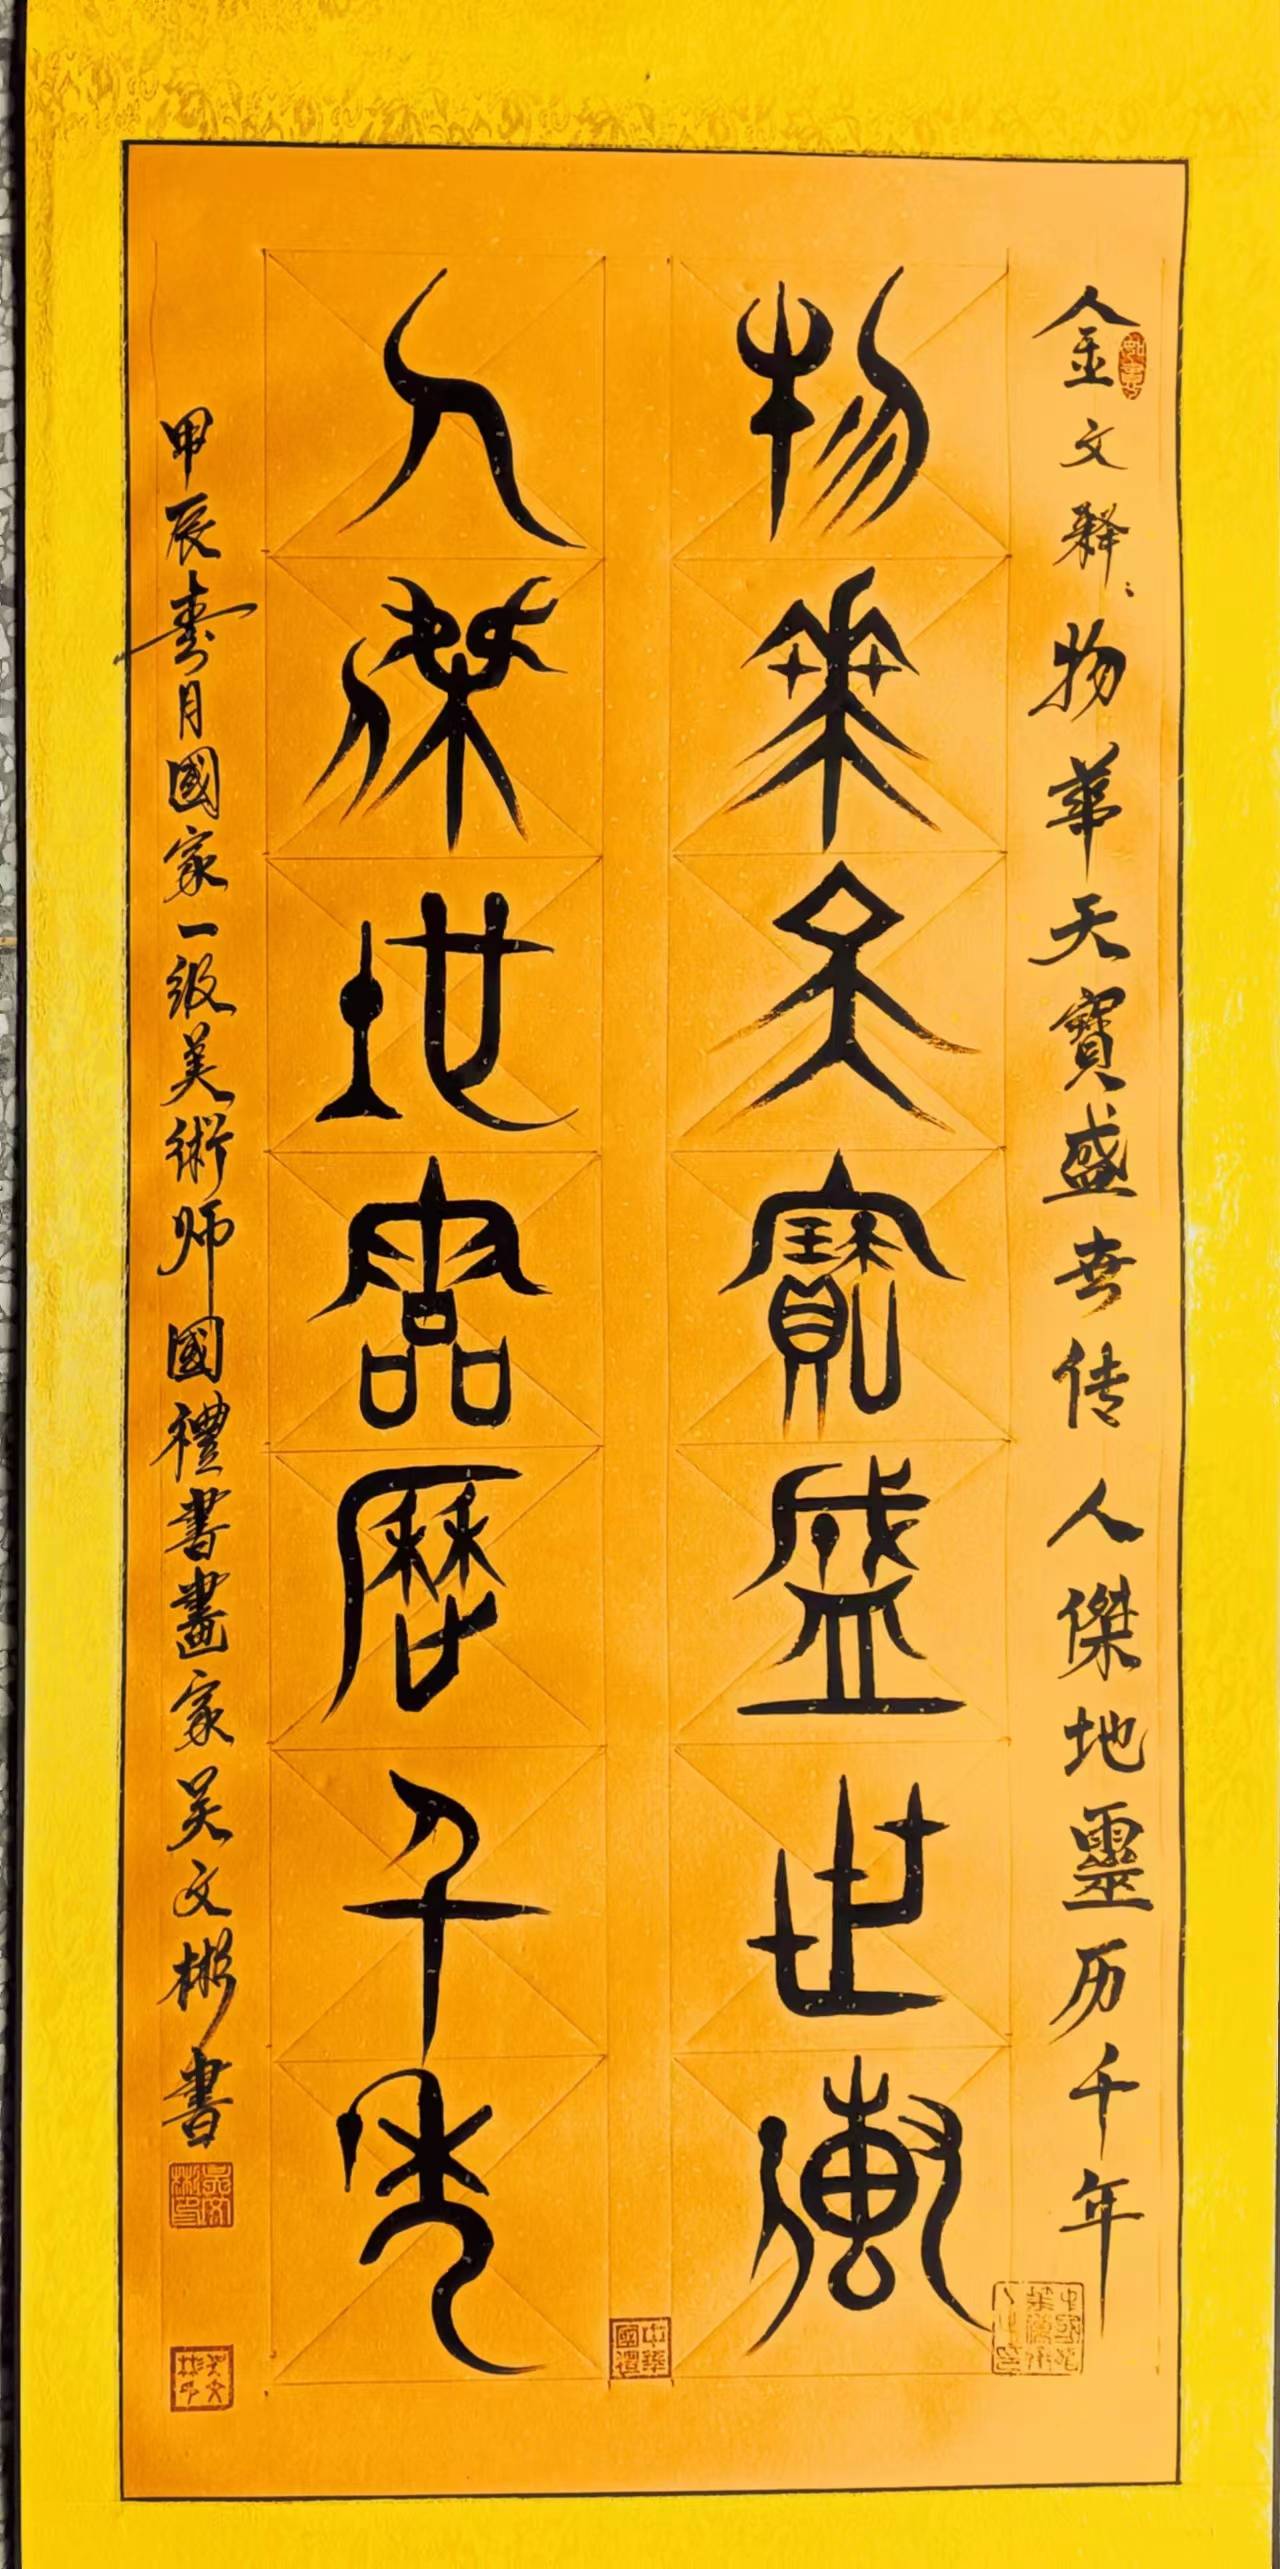 金文释：物華天寶盛世传 人傑地靈历千年
物華天寶盛世傳
人傑地靈歷千年
甲辰寿月國家一级美術师國禮書畫家吴文彬書
吳文彬印